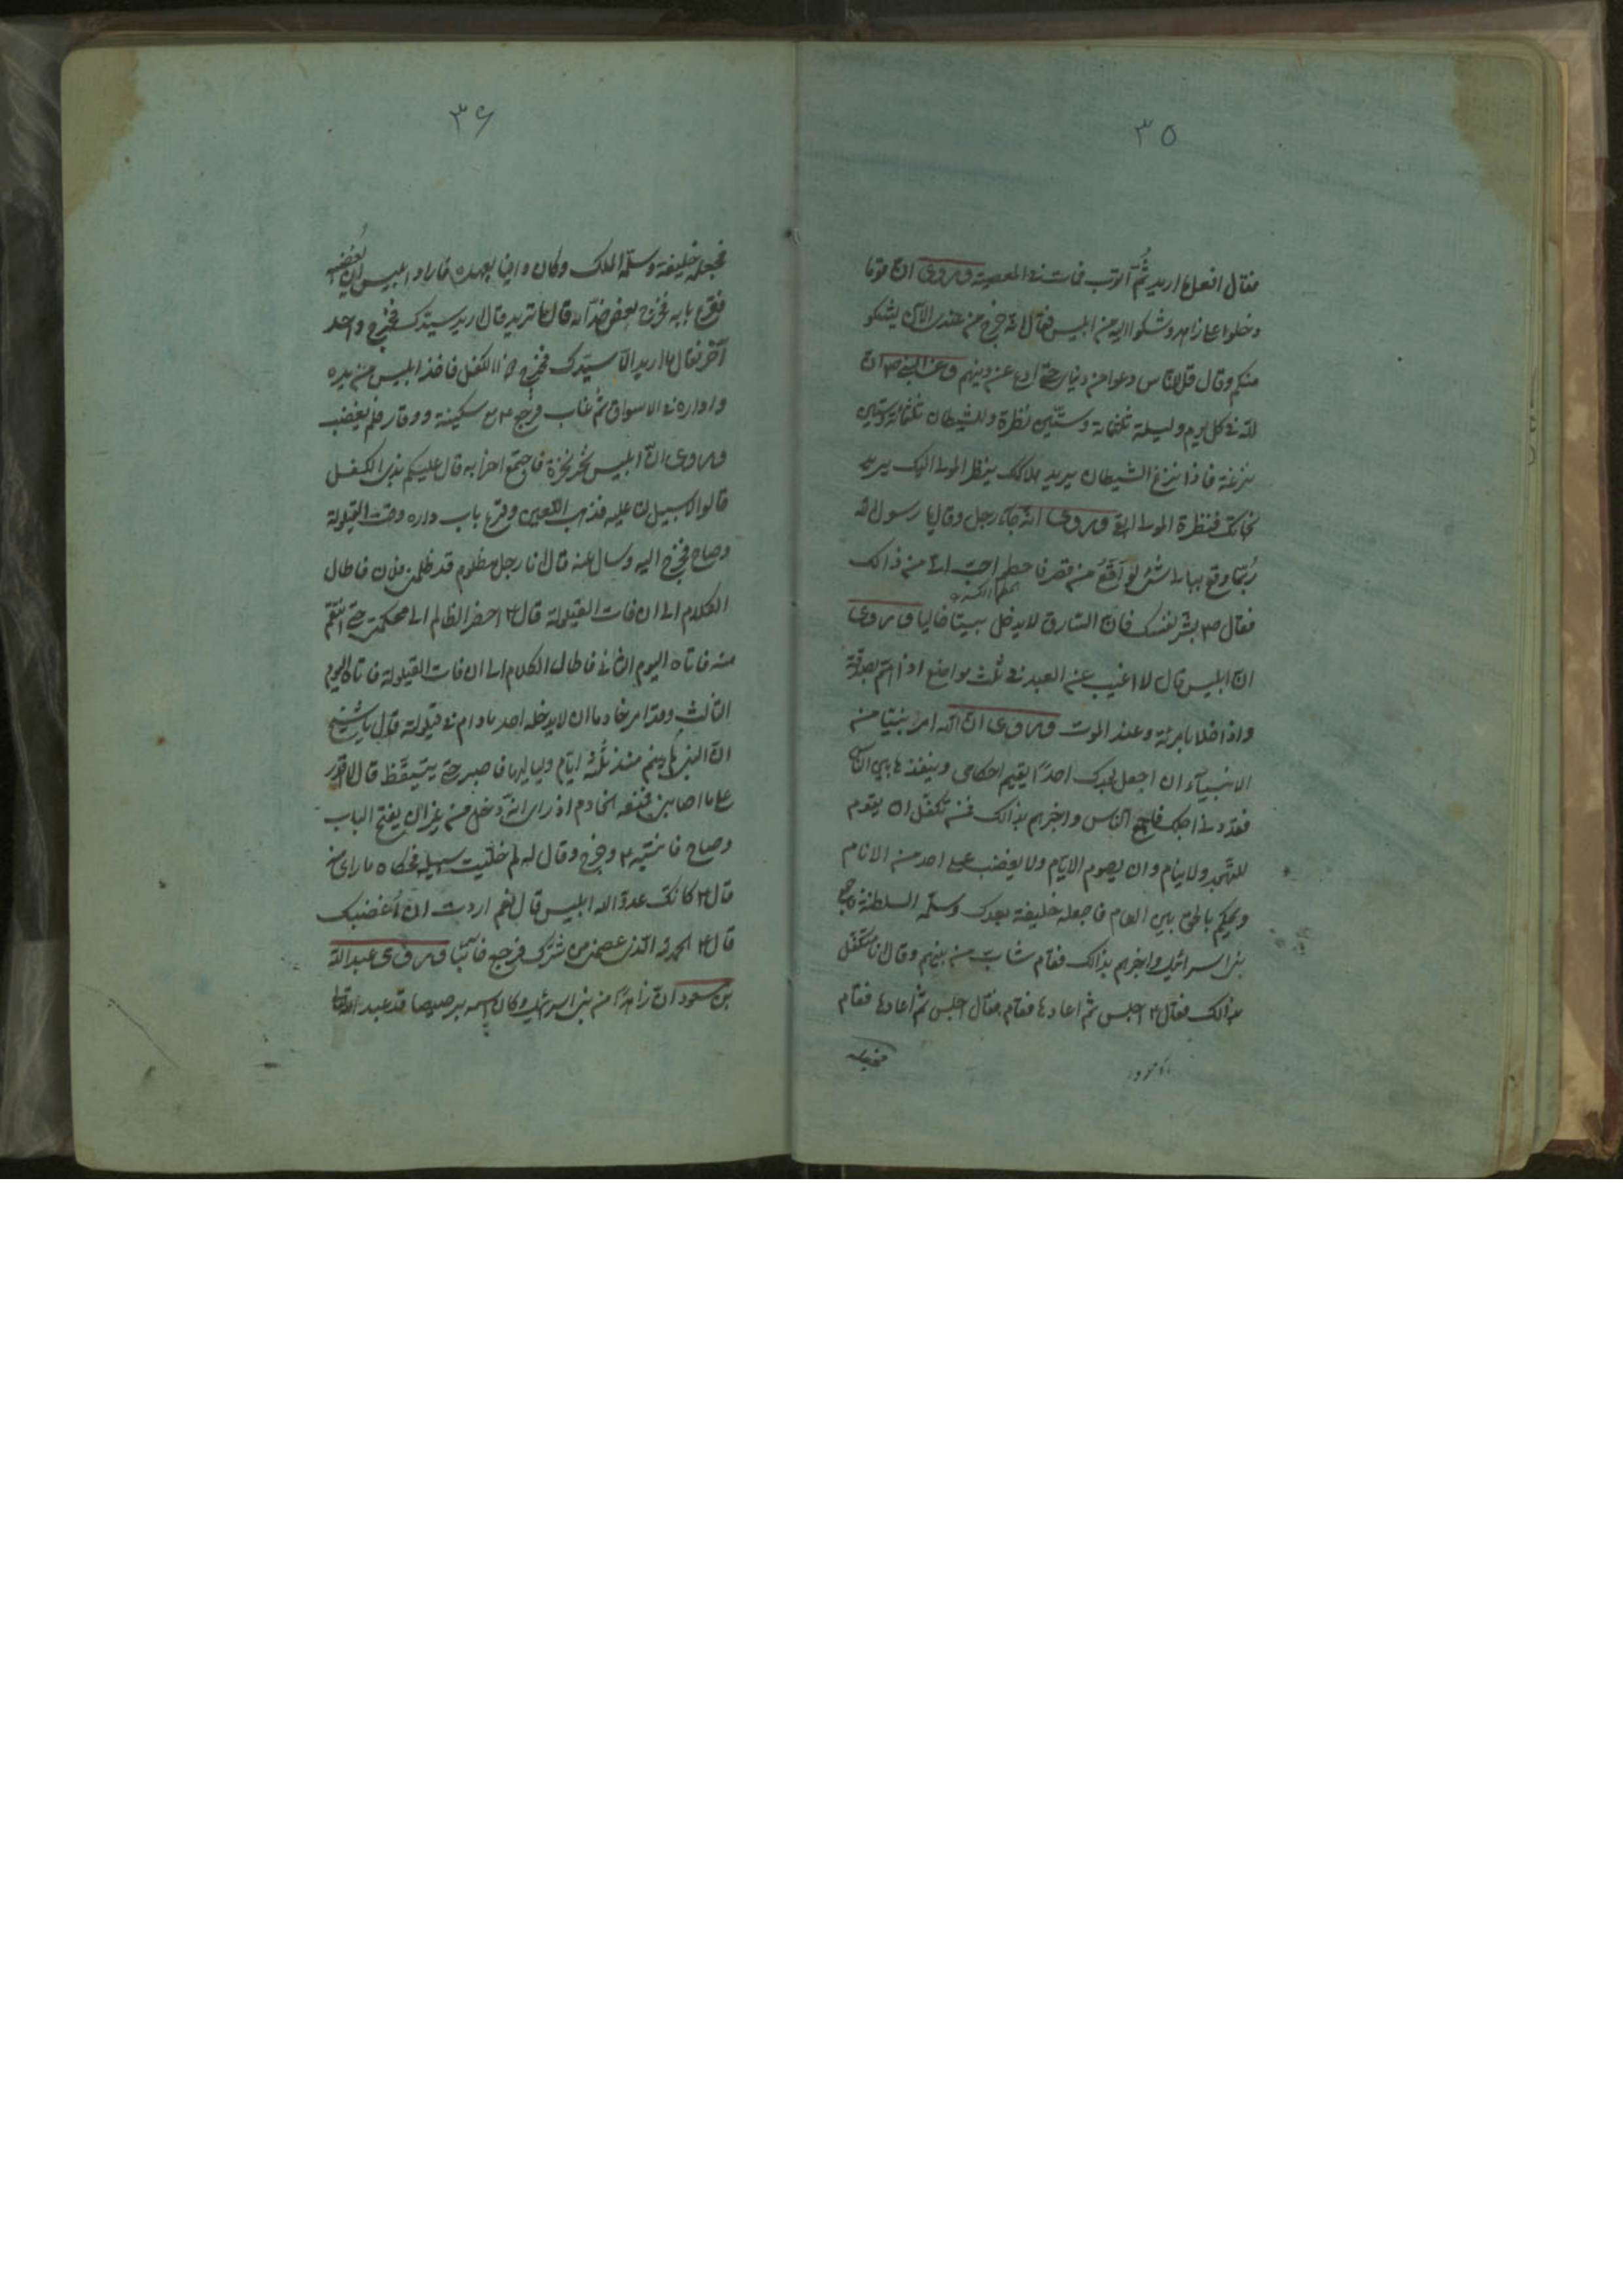 ٣٥
فقال افعل ما اريد ثُمَّ اتوب فمات فى المعصية وروى انّ قوما
دخلوا على زاهد وشكوا اليه من ابليس فقال انّه خرج من عندى الآن يشكو
منكم وقال قل للناس دعوا من دنياى حتّى ادع عن دينهم وعن النبى ص انّ
للّه فى كل يوم وليلة ثلثمائة وستّين نظرة وللشيطان ثلثمائة وستين
نزغة فاذا نزغ الشيطان يريد هلاكك ينظر المولى اليك يريد
نجاتك فنظرة المولى وروى انّه جاء رجل وقال يا رسول اللّه
ربّما وقع ببالى شئ لو اقع من قصر فاحطم احبّ الىّ من ذالك
فقال ص بشّر نفسك فانّ السّارق لا يدخل بيتا خاليا وروى
انّ ابليس قال لا اغيب عن العبد فى ثلث مواضع اذا همّ بصدقة
واذا خلا بامرئة وعند الموت وروى انّ اللّه امر نبيّا من
الانبياء ان اجعل بعدك احدًا يقيم احكامى وينفذها بين النّاس
فقد دنى اجلك فاجمع النّاس واخبرهم بذالك فمن تكفّل ان يقوم
للتهجّد ولا ينام وان يصوم الايّام ولا يغضب على احد من الانام
ويحكم بالحق بين العام فاجعله خليفة بعدك وسلّمه السلطنة فجمع
بنى اسرائيل واخبرهم بذالك فقام شابّ من بينهم وقال انا متكفّل
بذالك فقال ع اجلس ثمّ اعادها فقام فقال اجلس ثمّ اعادها فقام
فجعله
٣٦
فجعله خليفة وسلّمه الملك وكان وافيا بعهده فاراد ابليس ان يُغضبه
فقرع بابه فخرج بعض خدّامه قال ما تريد قال اريد سيّدك فخرج واحد
آخر فقال ما اريد الّا سيّدك فخرج ذا الكفل فاخذ ابليس من يده
واداره فى الاسواق ثمّ غاب فرجع ع مع سكينة ووقار فلم يغضب
وروى انّ ابليس نخر نخرة فاجتمع احزابه قال عليكم بذى الكفل
قالوا لا سبيل لنا عليه فذهب اللعين وقرع باب داره وقت القيلولة
وصاح فخرج اليه وسال عنه قال انا رجل مظلوم قد ظلمنى فلان فاطال
الكلام الى ان فات القيلولة قال ع احضر الظالم الى محكمتى حتّى انتقم
منه فاتاه اليوم الثانى فاطال الكلام الى ان فات القيلولة فاتاه اليوم
الثالث وقد امر خادما ان لا يدخله احد مادام فى قيلولة فقال يا شيخ
انّ النبى لم ينم منذ ثلثة ايّام ولياليها فاصبر حتّى يتيقّظ قال لا اقدر
على ما اصابنى فمنعه الخادم اذ راى انّه دخل من غير ان يفتح الباب
وصاح فانتبه ع وخرج وقال له لم خلّيت سبيله فحكاه ما راى
قال ع كانك عدوّ اللّه ابليس قال نعم اردت ان اُغضبك
قال ع الحمد للّه الّذى عصمنى من شرّك فرجع خائبًا وروى عبد اللّه
بن مسعود انّ زاهدًا من بنى اسرائيل وكان اسمه برصيصا قد عبد اللّه